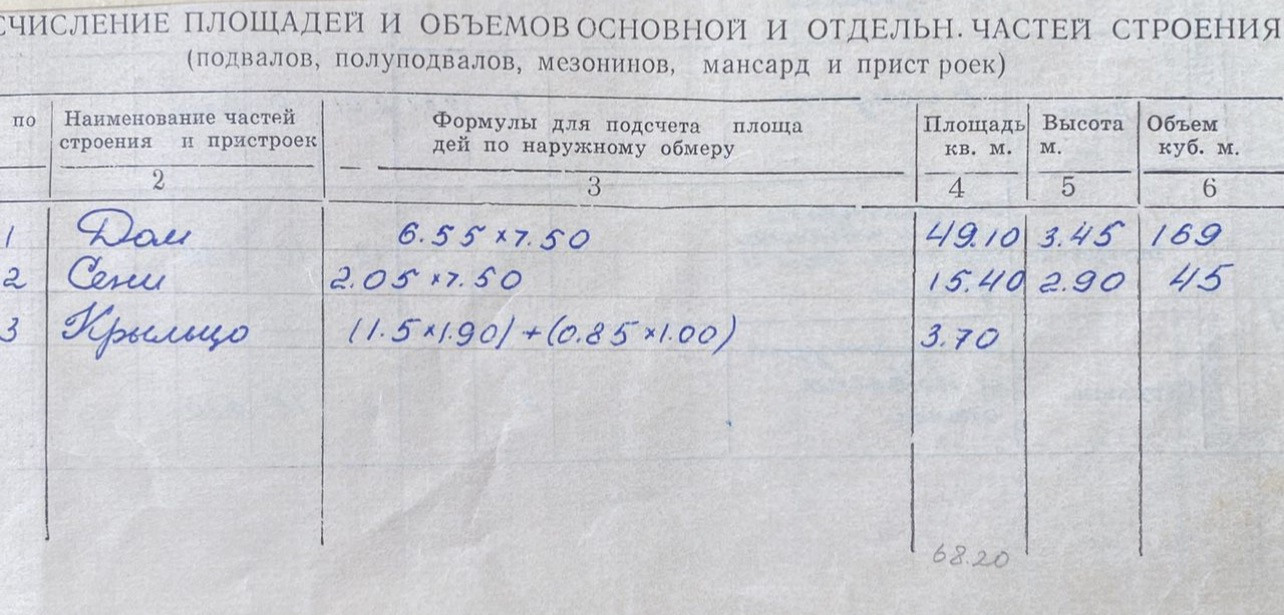 СЧИСЛЕНИЕ ПЛОЩАДЕЙ И ОБЪЕМОВ ОСНОВНОЙ И ОТДЕЛЬН. ЧАСТЕЙ СТРОЕНИЯ
(подвалов, полуподвалов, мезонинов, мансард и прист роек)
по | Наименование частей строения и пристроек | Формулы для подсчета площа дей по наружному обмеру | Площадь кв. м. | Высота м. | Объем куб. м.
2 | 3 | 4 | 5 | 6
1 | Дом | 6.55 × 7.50 | 49.10 | 3.45 | 169
2 | Сени | 2.05 × 7.50 | 15.40 | 2.90 | 45
3 | Крыльцо | (1.5 × 1.90) + (0.85 × 1.00) | 3.70
68.20